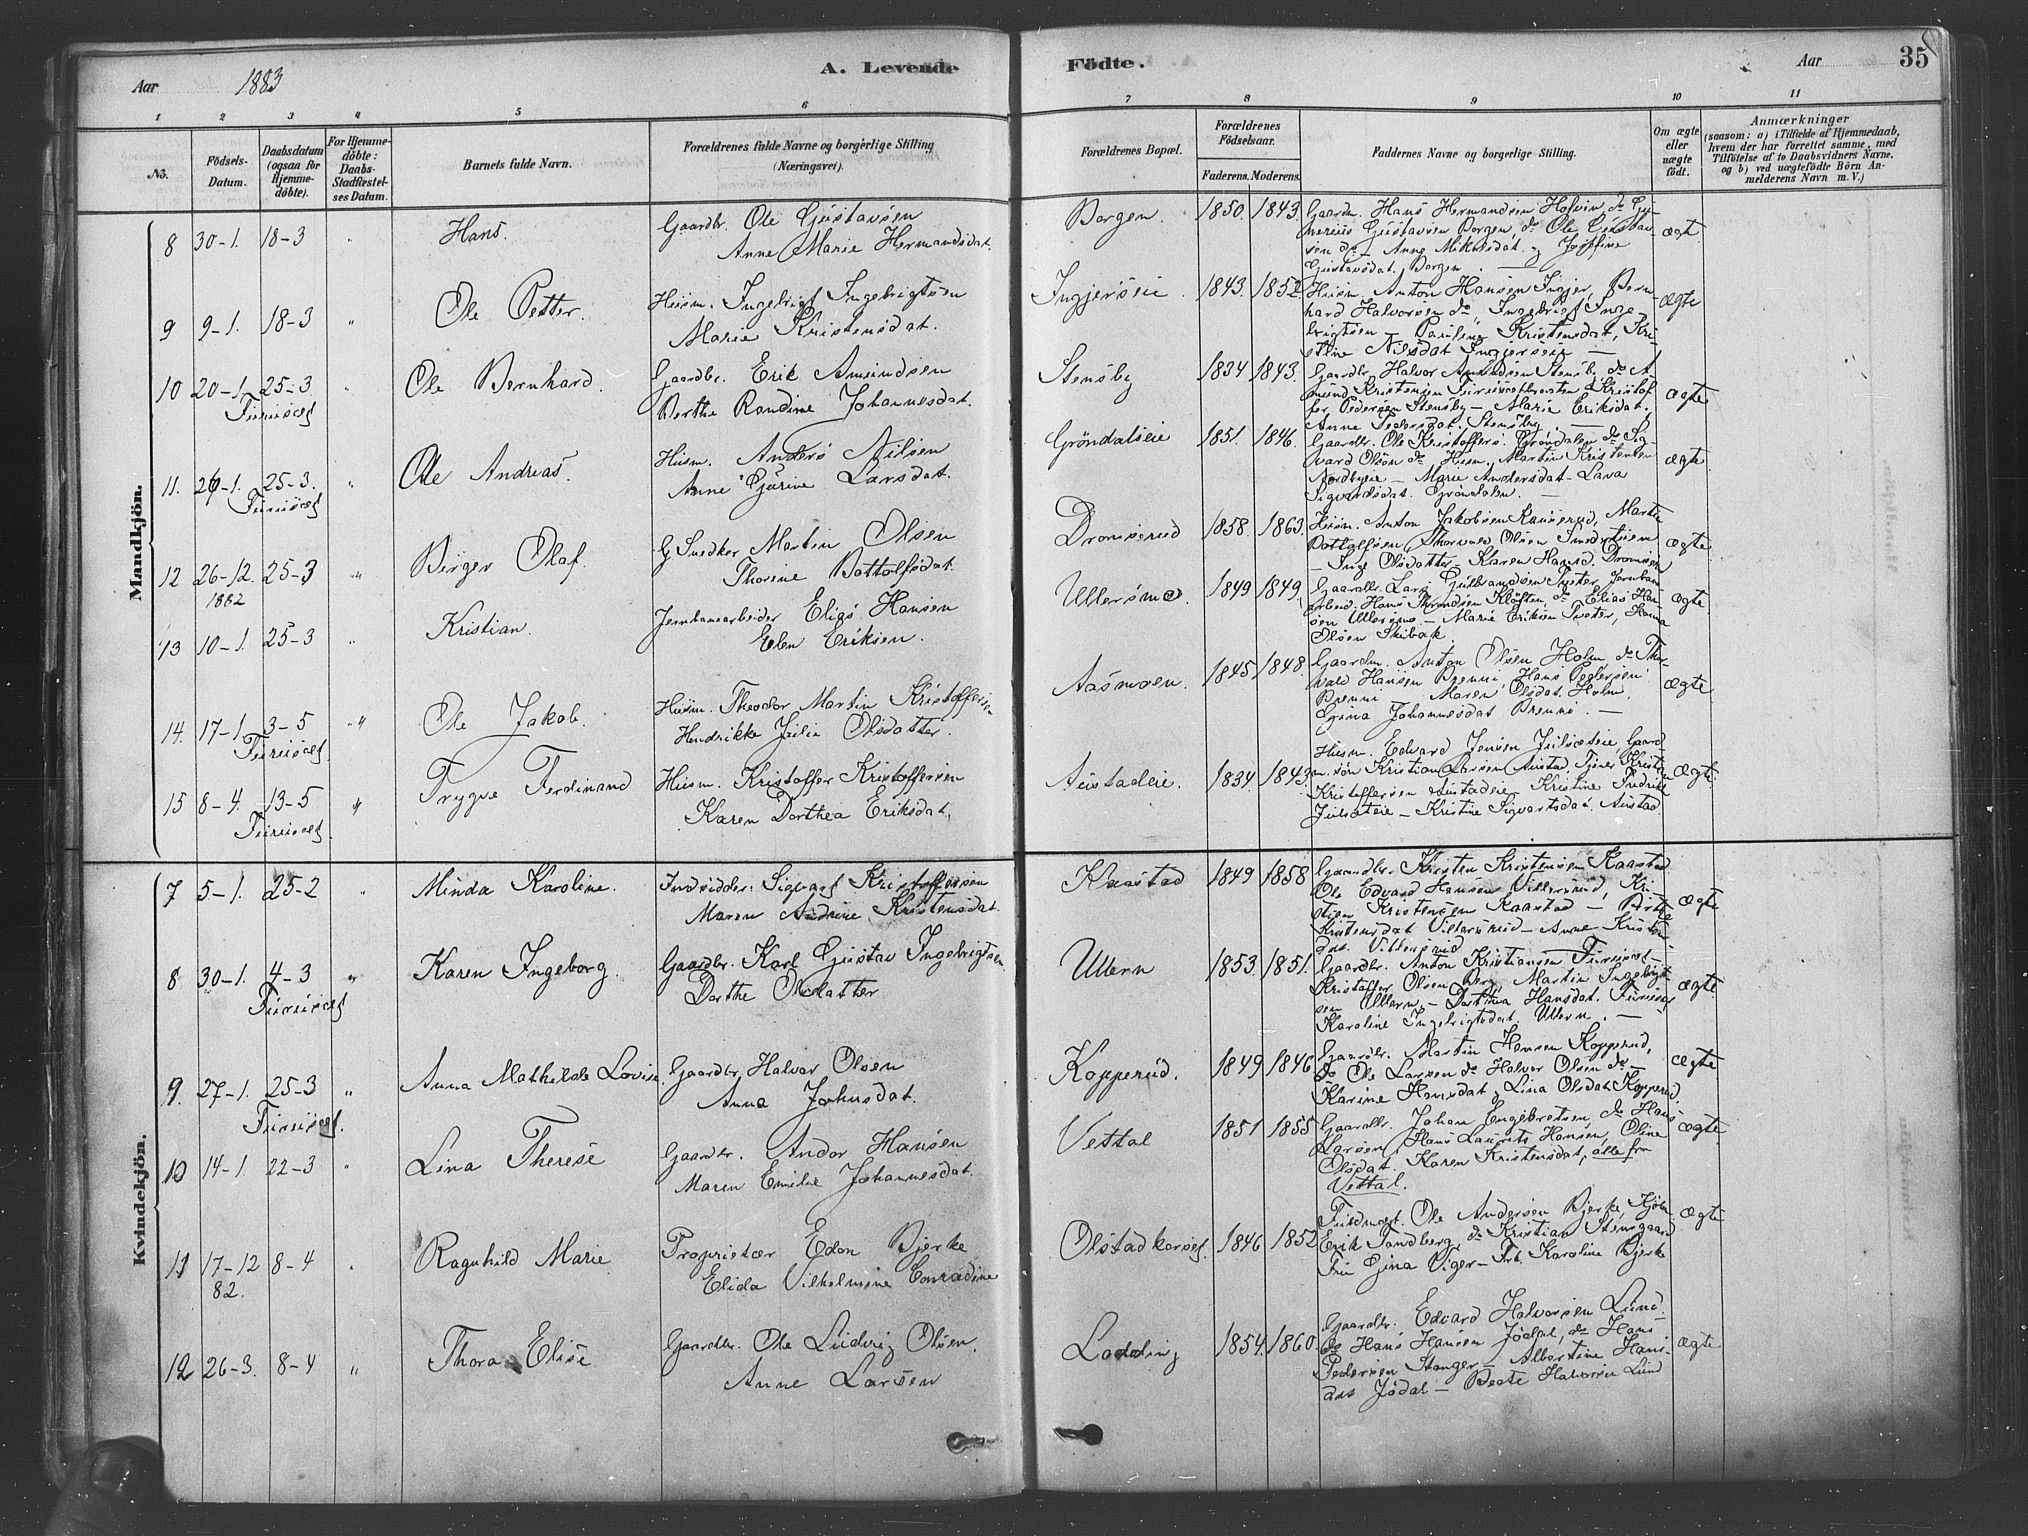 Aar 1883
A. Levende Födte.
Aar 35
1 2 3 4 5 6 7 8 9 10 11
No.
Födsels-Datum.
Daabsdatum (ogsaa for Hjemmedöbte).
For Hjemmedöbte: Daabs-Stadfæstelses Datum.
Barnets fulde Navn.
Forældrenes fulde Navne og borgerlige Stilling (Næringsvei).
Forældrenes Bopæl.
Forældrenes Födselsaar.
Faderens. Moderens.
Faddernes Navne og borgerlige Stilling.
Om ægte eller uægte födt.
Anmærkninger
(saasom: a) i Tilfælde af Hjemmedaab, hvem der har forrettet samme, med Tilföielse af to Daabsvidners Navne, og b) ved uægtefödte Börn Anmelderens Navn m. V.)
Mandkjön.
8 30-1. 18-3 " Hans. Gaardbr. Ole Gustavsen
Anne Marie Hermandsdat.
Borgen. 1850. 1843. Gaardm. Hans Hermandsen Holvin, do
Gustavsen Borgen, do Ole Gustav-
sen do - Anne Mikkelsdat. Josefine
Gustavsdat. Borgen. ægt
9 9-1. 18-3 " Ole Petter. Husm. Ingebrigt Ingebrigtsen
Marie Kristensdat.
Ingjerseie. 1843. 1852. Husm. Anton Hansen Ingjer, Bern
hard Halvorsen do, Ingebrigt Inge-
brigtsen Pauline Kristensdat, Kri-
stine Nilsdat Ingjerseie - Ægte
10 20-1. 25-3 " Ole Bernhard. Gaardbr. Erik Amundsen
Furuset Berthe Randine Johannesdat.
Stensby 1834 1843. Gaardbr. Halvor Amundsen Stensby do A-
mund Kristensen Kristof-
fer Pedersen Stensby - Marie Eriksdat.
Anne Pedersdat. Stensby. ægte
11. 26-1. 25-3. " Ole Andreas. Husm. Anders Nilsen
Furuset Anne Gurine Larsdat.
Gröndalseie 1851. 1846. Gaardbr. Ole Kristoffers. Gröndalen do Sig-
vard Olsen do Husm. Martin Kristensen
Nordbyeie - Marie Andersdat - Lava
Sigvardsdat. Gröndalen. - ægte
12 26-12. 25-3 " Birger Olaf. G Snedker Martin Olsen
1882 Thorine Bottolfsdat.
Dromserud 1858. 1863 Husm. Anton Jakobsen, Martin
Bottolfsen, Thorvald Olsen
- Inge Olsdatter - Karen Hansd. ægte
13 10-1. 25-3 " Kristian. Jernbanearbeider Elias Hansen
Elen Eriksen.
Ullersmo. 1849 1849. Gaardbr. Lars Gulbrandsen, Jernban
arbeid. Hans Throndsen Klöften, do Elias Han-
sen Ullersmo - Marie Eriksen, Hanna
Olsen Skibak. ægte
14. 17-1. 3-5 " Ole Jakob. Husm. Theodor Martin Kristoffersen
Furuset Hendrikke Julie Olsdatter.
Aasmoen. 1845 1848. Gaardm. Anton Olsen Holm, do Thor-
vald Hansen Brenni, Hans Pedersen
Brenni Maren Olsdat. Holm.
Gina Johannesdat Brenni. - ægte
15 8-4. 13-5 " Trygve Ferdinand Husm. Kristoffer Kristoffersen
Furuset Karen Dorthea Eriksdat.
Austadeie. 1834. 1843. Husm. Edvard Jensen Julseteie, Gaard-
m. sön Kristian Larsen Austad
Kristoffersen Austadeie Kristine Fredrikke
Julseteie - Kristine Sigvartsdat. Austad. Ægte
Kvindekjön.
7 5-1. 25-2 " Minda Karoline. Indsidder Sigvart Kristoffersen
Maren Andrine Kristensdat.
Kaastad 1849 1858 Gaardbr. Kristen Kristensen Kaastad
Ole Edvard Hansen Villersrud, Kri
stian Kristensen Kaastad - Birthe
Kristensdat - Anne Kristen
dat. ægte
8 30-1. 4-3 " Karen Ingeborg. Gaardbr. Karl Gustav Ingebrigtsen
Furuset Dorthe Olsdatter
Ullern 1853. 1851. Gaardbr. Anton Kristiansen Furuset -
Kristoffer Olsen Berg, Martin Ingebrigt-
sen Ullern, - Dorthea Hansdat. Furuset
Karoline Ingebrigtsdat. Ullern. - ægte
9. 27-1. 25-3 " Anna Mathilde Lovise Gaardbr. Halvor Olsen
Furuset. Anna Johnsdat.
Kopperud. 1849 1846 Gaardbr. Martin Hansen Kopperud,
do Ole Larsen do Halvor Olsen do -
Karine Hansdat, Lina Olsdat. Kopperud. Ægte
10 14-1. 22-3 " Lina Therese Gaardbr. Andor Hansen
Maren Emilie Johannesdat.
Vettal 1851 1855 Gaardbr. Johan Engebretsen, do Hans
Larsen, Hans Laurits Hansen, Oline
Olsdat. Karen Kristensdat, alle fra
Vettal. ægte
11 17-12 8-4 " Ragnhild Marie. Proprietær Edon Bjerke
82. Elida Vilhelmine Conradine
Olstad korset. 1846 1852 Ole Andersen Bjerke Kjöbm.
Erik Sandberg, do Kristian Stensgaard
Fru Gina Viger - Frk. Karoline Bjerke ægte
12 26-3. 8-4 " Thora Elise Gaardbr. Ole Ludvig Olsen.
Anne Larsen
Lodding 1854. 1860. Gaardbr. Edvard Halvorsen Lund.
do Hans Hansen Jödal, do Hans
Pedersen Stanger - Albertine Hans-
dat Jödal - Beate Halvorsen Lund ægte